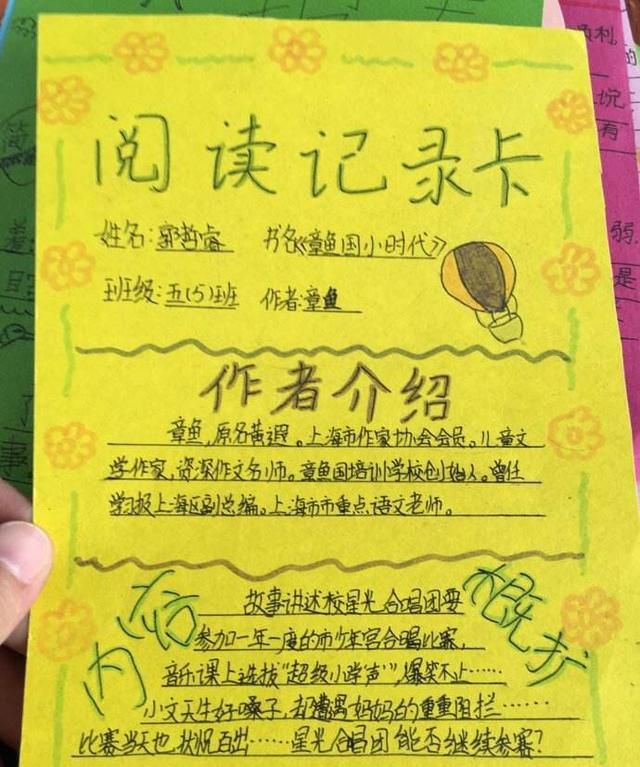 阅读记录卡
姓名:郭哲睿 书名《章鱼国小时代》
班级:五(5)班 作者:章鱼
作者介绍
章鱼,原名黄遐。上海市作家协会会员。儿童文
学作家,资深作文名师。章鱼国培训学校创始人。曾任
学习报上海区副总编。上海市市重点语文老师。
内容概括
故事讲述校星光合唱团要
参加一年一度的市少年宫合唱比赛,
音乐课上选拔“超级小学声”,爆笑不止……
小文天生好嗓子,却遭遇妈妈的重重阻拦……
比赛当天也状况百出……星光合唱团能否继续参赛?
利,
的
况
有
弱
是
简
着
目
了
事